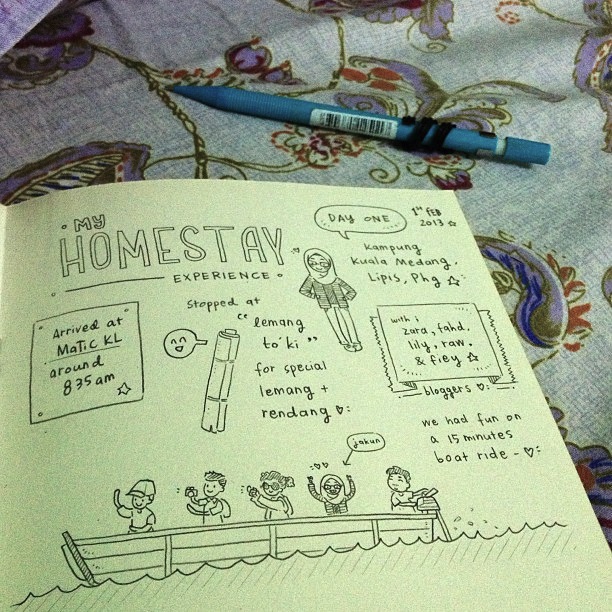 MY
HOMESTAY
EXPERIENCE
DAY ONE
1st FEB
2013
Kampung
Kuala Medang,
Lipis, Phg
Arrived at
MaTiC KL
around
835am
Stopped at
"lemang
to'ki"
for special
lemang +
rendang
with :
zara, fahd,
lily, raw,
& fiey
bloggers
we had fun on
a 15 minutes
boat ride -
jakun